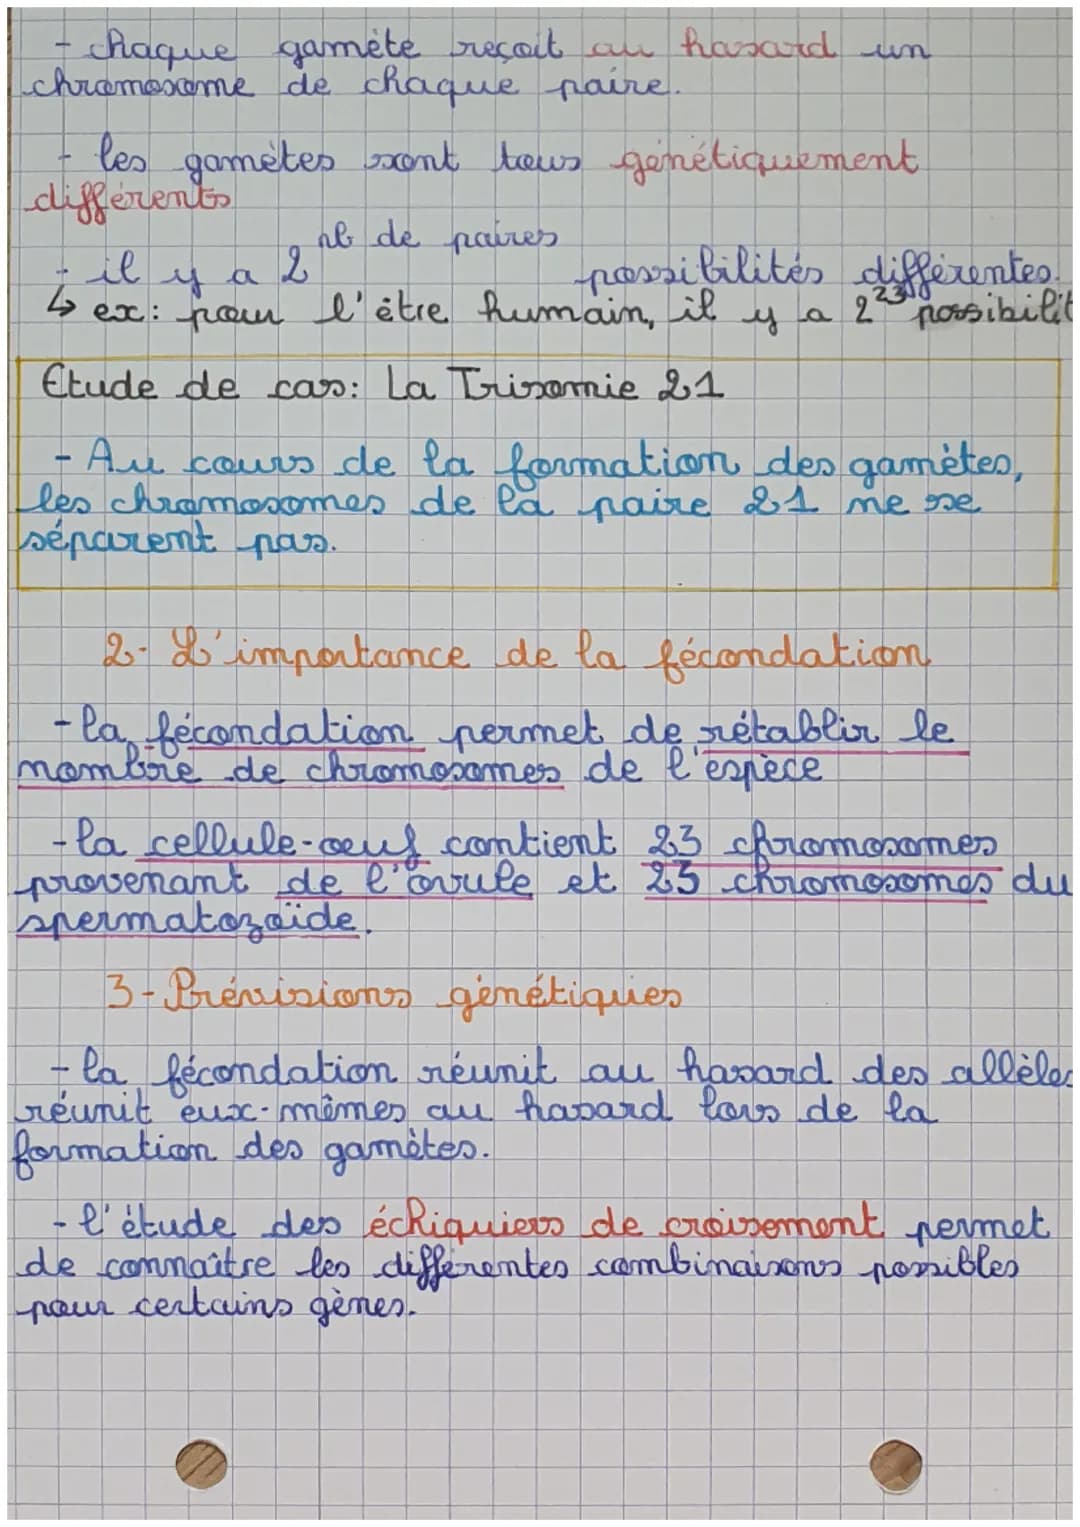 - chaque gamète reçoit au hasard un
chromosome de chaque paire.
- les gamètes sont tous génétiquement
différents
- il y a 2^nb de paires possibilités différentes.
↳ ex: pour l'être humain, il y a 2^23 possibilit
Etude de cas: La Trisomie 21
- Au cours de la formation des gamètes,
les chromosomes de la paire 21 ne se
séparent pas.
2- L'importance de la fécondation
- la fécondation permet de rétablir le
nombre de chromosomes de l'espèce
- la cellule-oeuf contient 23 chromosomes
provenant de l'ovule et 23 chromosomes du
spermatozoïde.
3- Prévisions génétiques
- la fécondation réunit au hasard des allèles
réunit eux-mêmes au hasard lors de la
formation des gamètes.
- l'étude des échiquiers de croisement permet
de connaître les différentes combinaisons possibles
pour certains gènes.